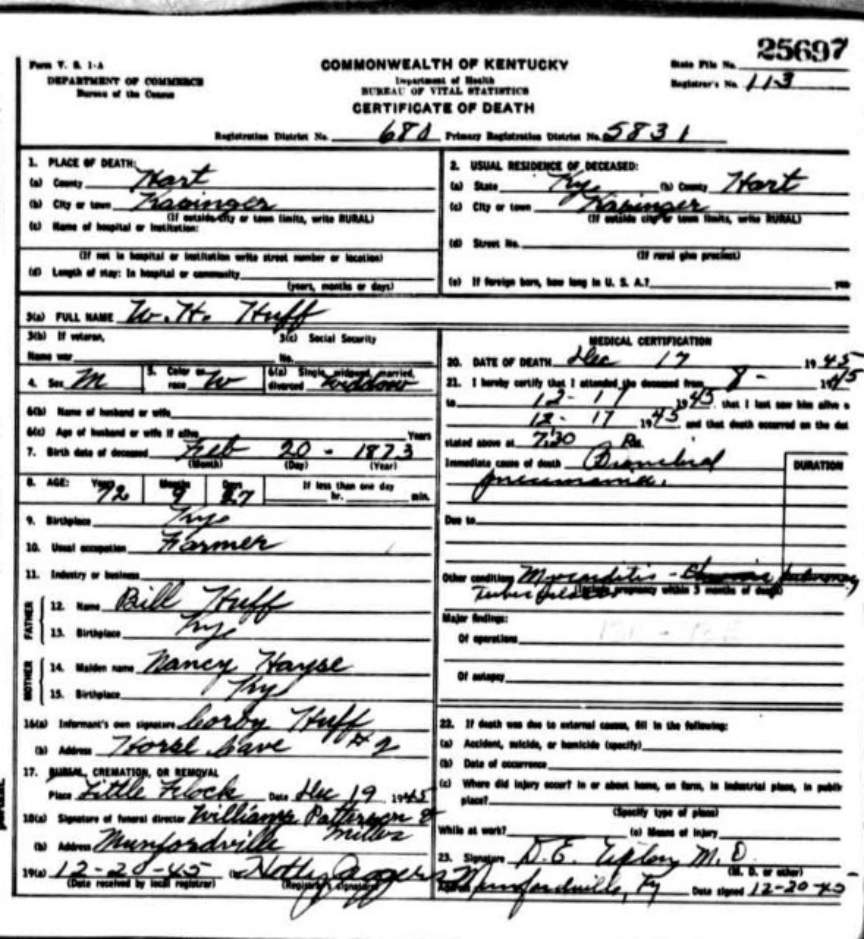 25697
Form V. S. 1-A
DEPARTMENT OF COMMERCE
Bureau of the Census
COMMONWEALTH OF KENTUCKY
Department of Health
BUREAU OF VITAL STATISTICS
CERTIFICATE OF DEATH
State File No.
Registrar's No. 113
Registration District No. 680 Primary Registration District No. 5831
1. PLACE OF DEATH:
(a) County Hart
(b) City or town
(If outside city or town limits, write RURAL)
(c) Name of hospital or institution:
(If not in hospital or institution write street number or location)
(d) Length of stay: In hospital or community
(years, months or days)
2. USUAL RESIDENCE OF DECEASED:
(a) State Ky. (b) County Hart
(c) City or town
(If outside city or town limits, write RURAL)
(d) Street No.
(If rural give precinct)
(e) If foreign born, how long in U. S. A.?
3(a) FULL NAME W. H. Huff
3(b) If veteran,
Name war
3(c) Social Security
No.
4. Sex M
5. Color or race W
6(a) Single, widowed, married, divorced widdow
6(b) Name of husband or wife
6(c) Age of husband or wife if alive Years
7. Birth date of deceased Feb 20 - 1873
(Month) (Day) (Year)
8. AGE: Years 72 Months 9 Days 27 If less than one day
hr. min.
9. Birthplace Ky
10. Usual occupation Farmer
11. Industry or business
FATHER
12. Name Bill Huff
13. Birthplace Ky
MOTHER
14. Maiden name Nancy Hayse
15. Birthplace Ky
16(a) Informant's own signature Corby Huff
(b) Address Horse Cave #2
17. BURIAL, CREMATION, OR REMOVAL
Place Little Flock Date Dec 19 1945
18(a) Signature of funeral director Williams Patterson &
(b) Address Munfordville
19(a) 12-20-45 (b) Jaggers
(Date received by local registrar) (Registrar's signature)
MEDICAL CERTIFICATION
20. DATE OF DEATH Dec 17 1945
21. I hereby certify that I attended the deceased from 8 - 1945
to 12-17 1945 that I last saw him alive
12-17 1945 and that death occurred on the
stated above at 7:30
Immediate cause of death Bronchial
pneumonia.
DURATION
Due to
Other condition Myocarditis - pulmonary
(Include pregnancy within 3 months of death)
Major findings:
Of operations
Of autopsy
22. If death was due to external causes, fill in the following:
(a) Accident, suicide, or homicide (specify)
(b) Date of occurrence
(c) Where did injury occur? In or about home, on farm, in industrial place, in public
place?
(Specify type of place)
While at work? (e) Means of injury
23. Signature M. D.
(M. D. or other)
Munfordville, Ky Date signed 12-20-45